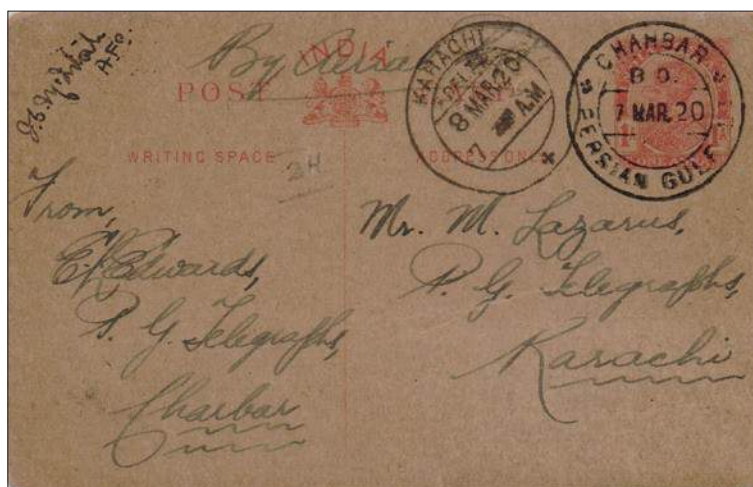 By Aerial
INDIA
POST CARD
WRITING SPACE
ADDRESS ONLY
KARACHI
DEL.
8 MAR.20
7 A.M
CHAHBAR
B.O.
7 MAR.20
PERSIAN GULF
24
From,
E. Edwards,
P. G. Telegraphs,
Charbar
Mr. M. Lazarus,
P. G. Telegraphs,
Karachi